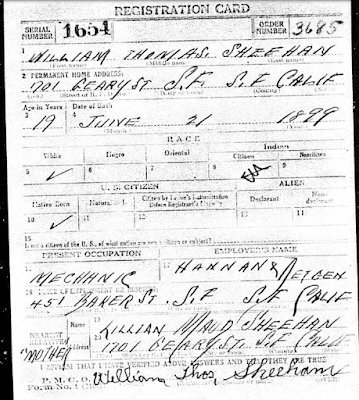 REGISTRATION CARD
SERIAL NUMBER 1654 ORDER NUMBER 3685
1 WILLIAM THOMAS SHEEHAN
(First name) (Middle name) (Last name)
2 PERMANENT HOME ADDRESS:
1701 GEARY ST S.F. S.F. CALIF
Age in Years Date of Birth
3 19 4 JUNE 21 1899
(Month) (Day) (Year)
RACE
White Negro Oriental Indian
Citizen Noncitizen
5 ✓ 6 7 8 9
U. S. CITIZEN ALIEN
Native Born Naturalized Citizen by Father's Naturalization Before Registrant's Majority Declarant Non-declarant
10 ✓ 11 12 13 14
15 If not a citizen of the U. S., of what nation are you a citizen or subject?
PRESENT OCCUPATION EMPLOYER'S NAME
16 MECHANIC 17 HANNAN &
18 PLACE OF EMPLOYMENT OR BUSINESS:
451 BAKER ST. S.F. S.F. CALIF
NEAREST RELATIVE 19 LILLIAN MAUD SHEEHAN
"MOTHER" 20 1701 GEARY ST. S.F. CALIF
I AFFIRM THAT I HAVE VERIFIED ABOVE ANSWERS AND THAT THEY ARE TRUE
P. M. G. O.
Form No. 1 William Thos. Sheehan